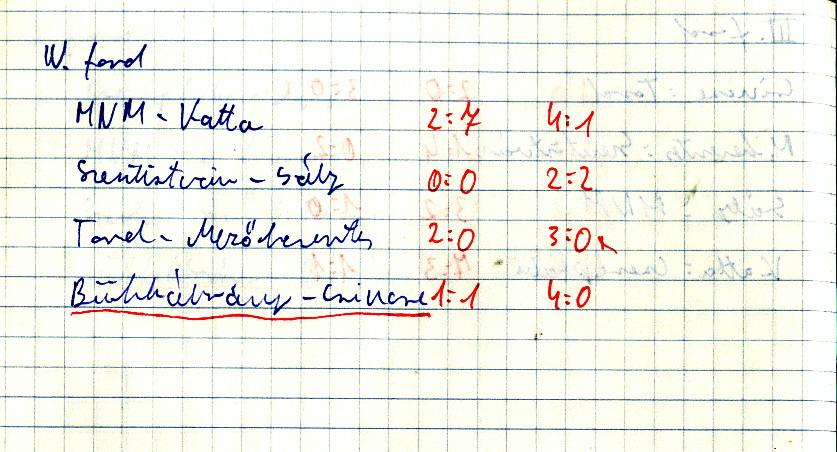 IV. ford
MNM - Vatta 2:7 4:1
Szentistván - Sály 0:0 2:2
Tard - Mezőkeresztes 2:0 3:0
Bükkábrány - Csincse 1:1 4:0